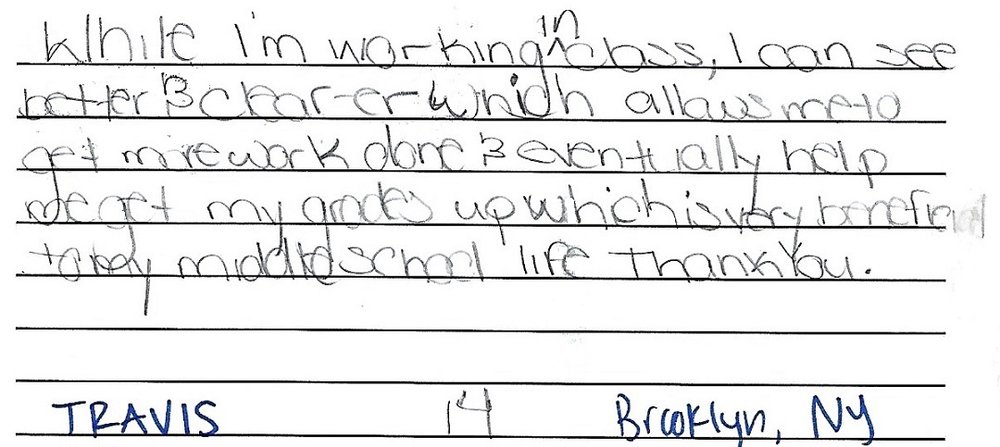 While I'm working in class, I can see
better & clear-er which allows me to
get more work done & eventually help
me get my grades up which is very beneficial
to my middle school life Thank You.
TRAVIS 14 Brooklyn, NY